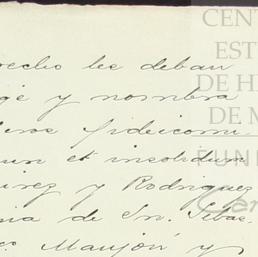 recho les deban
ige y nombra
deros fideicomi
mun et insolidum
irez y Rodriguez
nia de Sn. Sebas
co. Maujón y
CEN
EST
DE H
DE M
FUN
Car